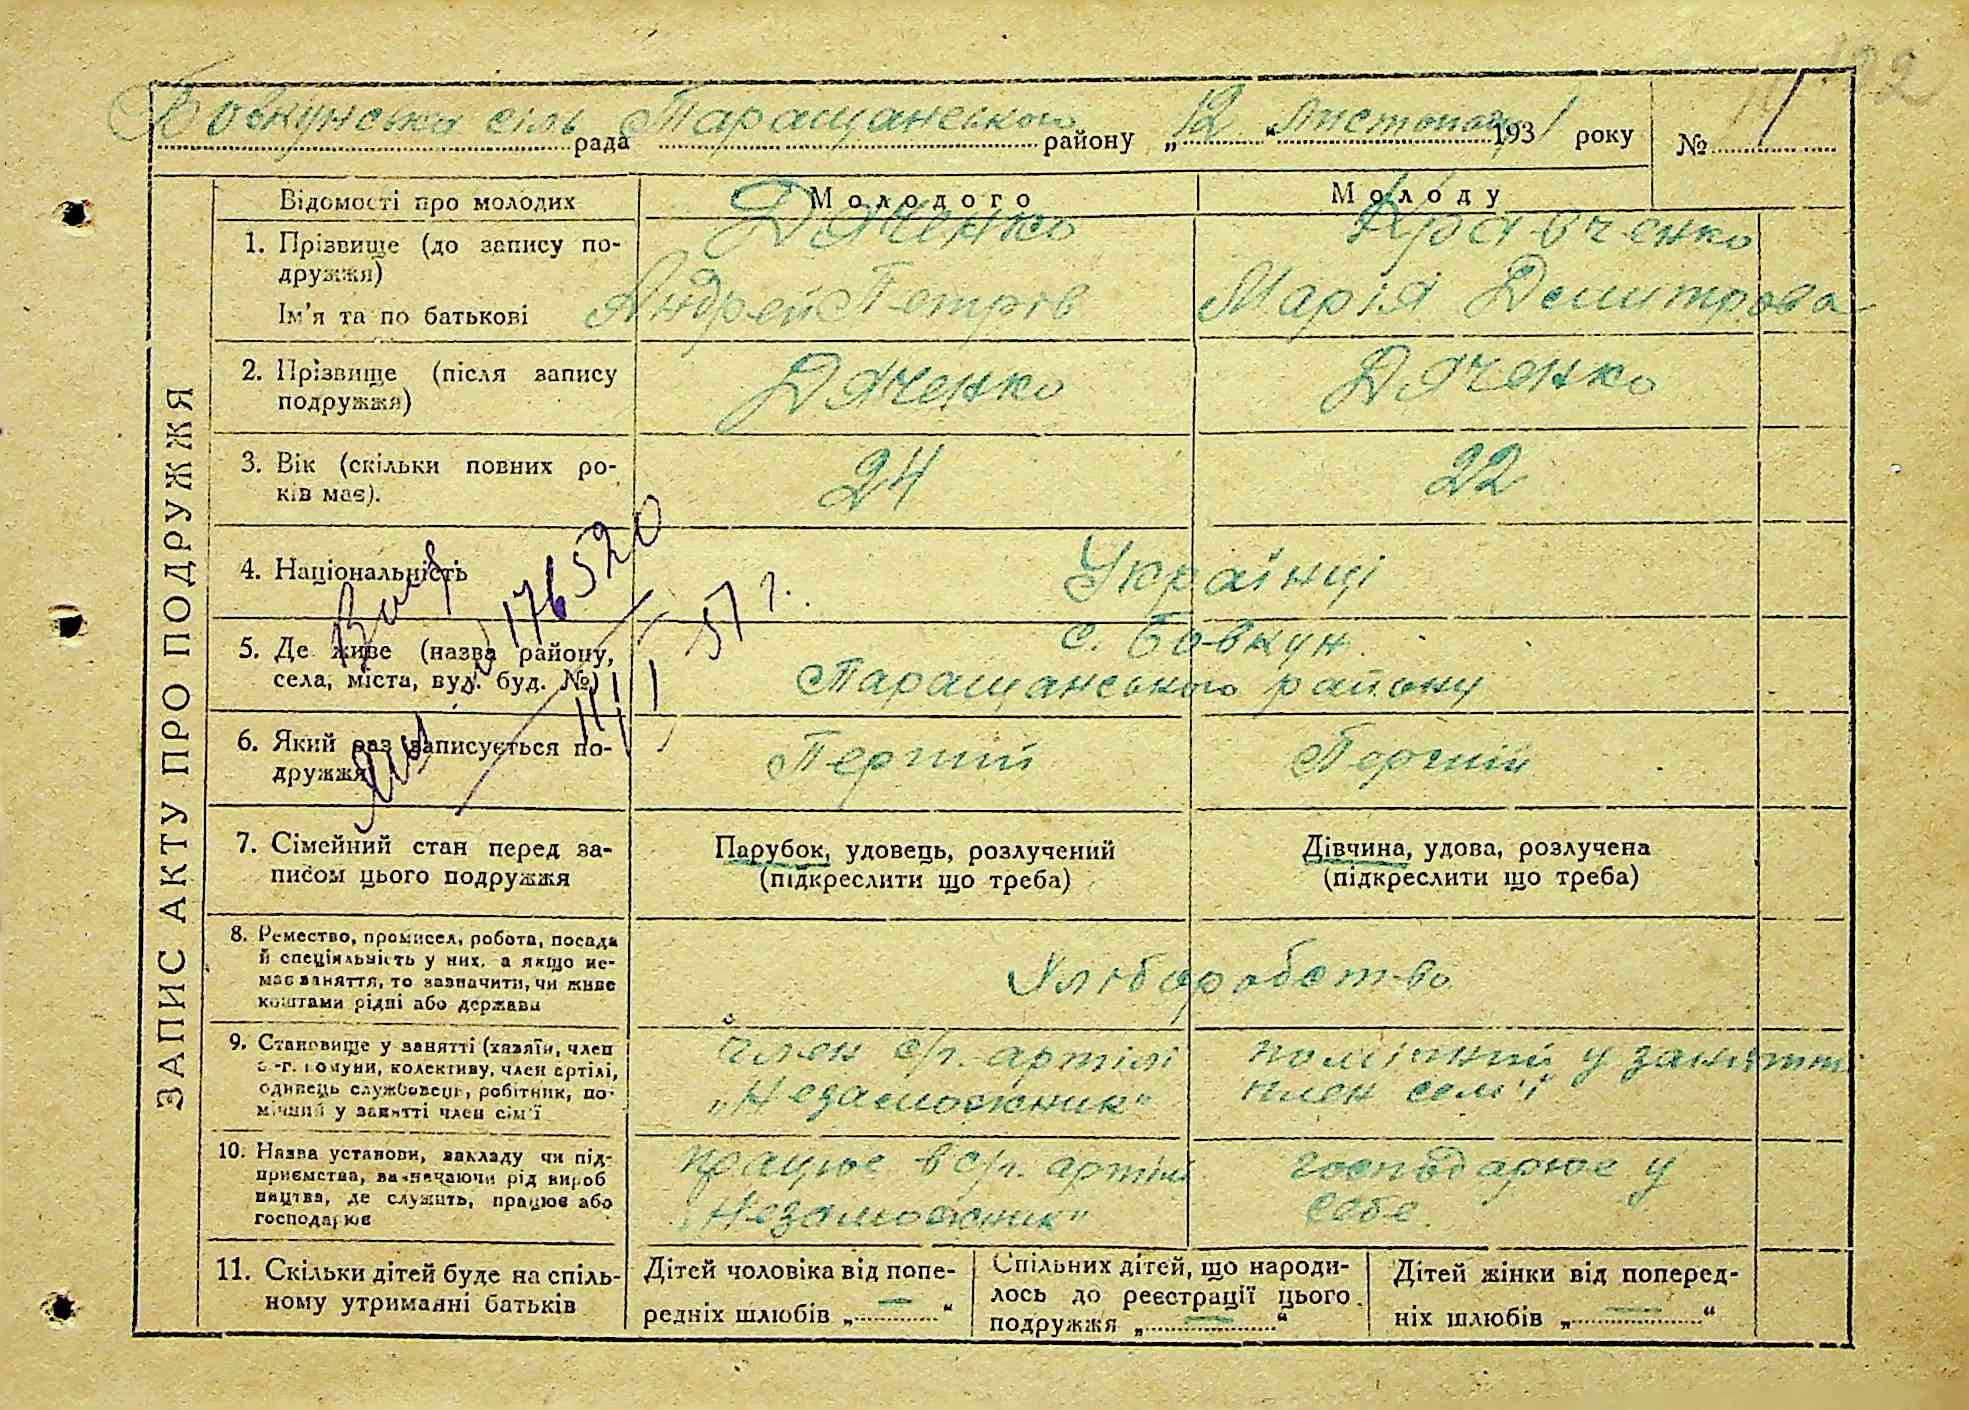 Бовкунська сіль рада Таращанського району „12“ Листопада 1931 року № 11
ЗАПИС АКТУ ПРО ПОДРУЖЖЯ
Відомості про молодих Молодого Молоду
1. Прізвище (до запису по-
дружжя)
Дяченко Кравченко
Ім'я та по батькові Андрей Петрів Марія Демитрова
2. Прізвище (після запису
подружжя)
Дяченко Дяченко
3. Вік (скільки повних ро-
ків має).
24 22
4. Національність Українці
5. Де живе (назва району,
села, міста, вул. буд. №)
с. Бовкун
Таращанського району
6. Який раз записується по-
дружжя
Перший Перший
176520
57 г.
7. Сімейний стан перед за-
писом цього подружжя
Парубок, удовець, розлучений
(підкреслити що треба)
Дівчина, удова, розлучена
(підкреслити що треба)
8. Ремество, промисел, робота, посада
й спеціяльність у них, а якщо не-
має заняття, то зазначити, чи живе
коштами рідні або держави
Хліборобство
9. Становище у занятті (хазяїн, член
с.-г. комуни, колективу, член артілі,
одинець службовець, робітник, по-
мічний у занятті член сім'ї
член с/г. артілі
„Незаможник“
помічний у занятті
член семʼї
10. Назва установи, закладу чи під-
приємства, визначаючи рід вироб
ництва, де служить, працює або
господарює
працює в с/г. артілі
„Незаможник“
господарює у
себе
11. Скільки дітей буде на спіль-
ному утриманні батьків
Дітей чоловіка від попе-
редніх шлюбів „—“
Спільних дітей, що народи-
лось до реєстрації цього
подружжя „—“
Дітей жінки від поперед-
ніх шлюбів „—“